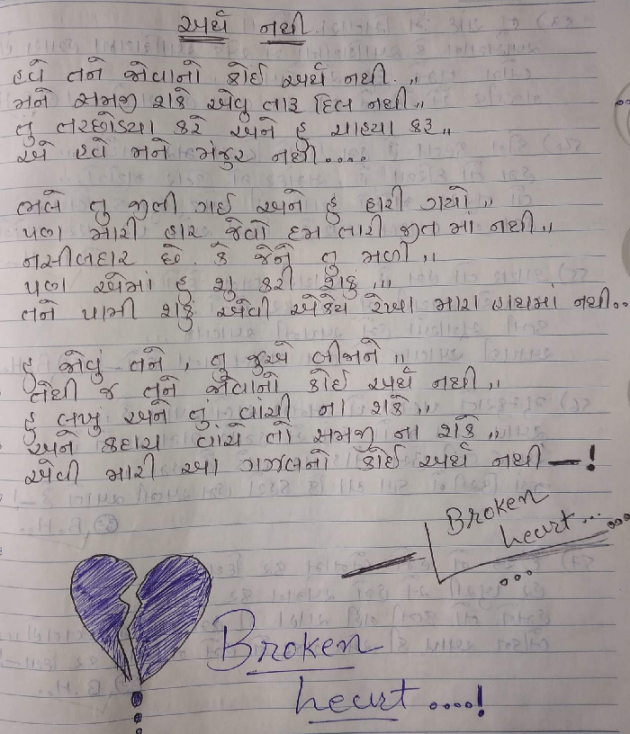 અર્થ નથી
હવે તને જોવાનો કોઈ અર્થ નથી..,,
મને સમજી શકે એવુ તારૂ દિલ નથી,,
તું તરછોડ્યા કરે અને હુ ચાહ્યા કરૂ,,
એ હવે મને મંજુર નથી....
ભલે તુ જીતી ગઈ અને હુ હારી ગયો,,
પણ મારી હાર જેવો દમ તારી જીત માં નથી,,
નસીબદાર છે. કે જેને તુ મળી,,
પણ એમાં હુ શુ કરી શકું,,,
તને પામી શકું એવી એકેય રેખા મારા હાથમાં નથી..
હુ જોવું તને, તુ જુએ બીજાને,,
તેથી જ તને જોવાનો કોઈ અર્થ નથી,,
હુ લખુ અને તું વાંચી ના શકે,,
અને કદાચ વાંચે તો સમજી ના શકે,,
એવી મારી આ ગઝલનો કોઈ અર્થ નથી—!
— Broken
heart...
Broken
heart....!